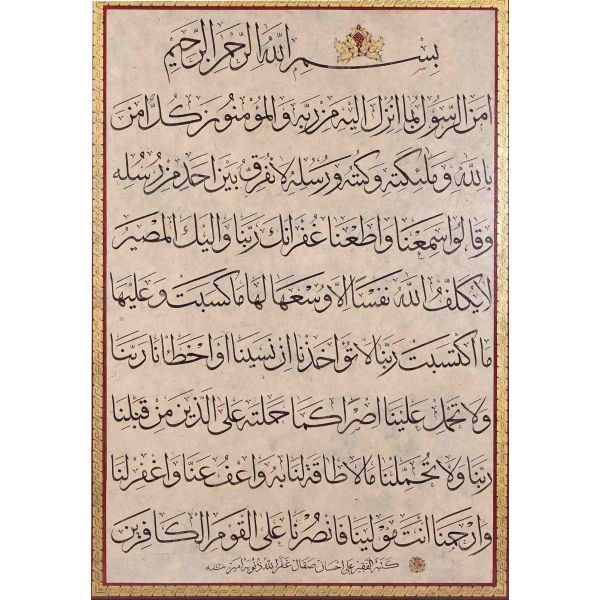 بسم الله الرحمن الرحيم
امن الرسول بما انزل اليه من ربه والمؤمنون كل امن
بالله وملئكته وكتبه ورسله لا نفرق بين احد من رسله
وقالوا سمعنا واطعنا غفرانك ربنا واليك المصير
لا يكلف الله نفسا الا وسعها لها ما كسبت وعليها
ما اكتسبت ربنا لا تؤاخذنا ان نسينا او اخطانا ربنا
ولا تحمل علينا اصرا كما حملته على الذين من قبلنا
ربنا ولا تحملنا ما لا طاقة لنا به واعف عنا واغفر لنا
وارحمنا انت مولينا فانصرنا على القوم الكافرين
كتبه الفقير علي احسان صقال غفر الله ذنوبه امين